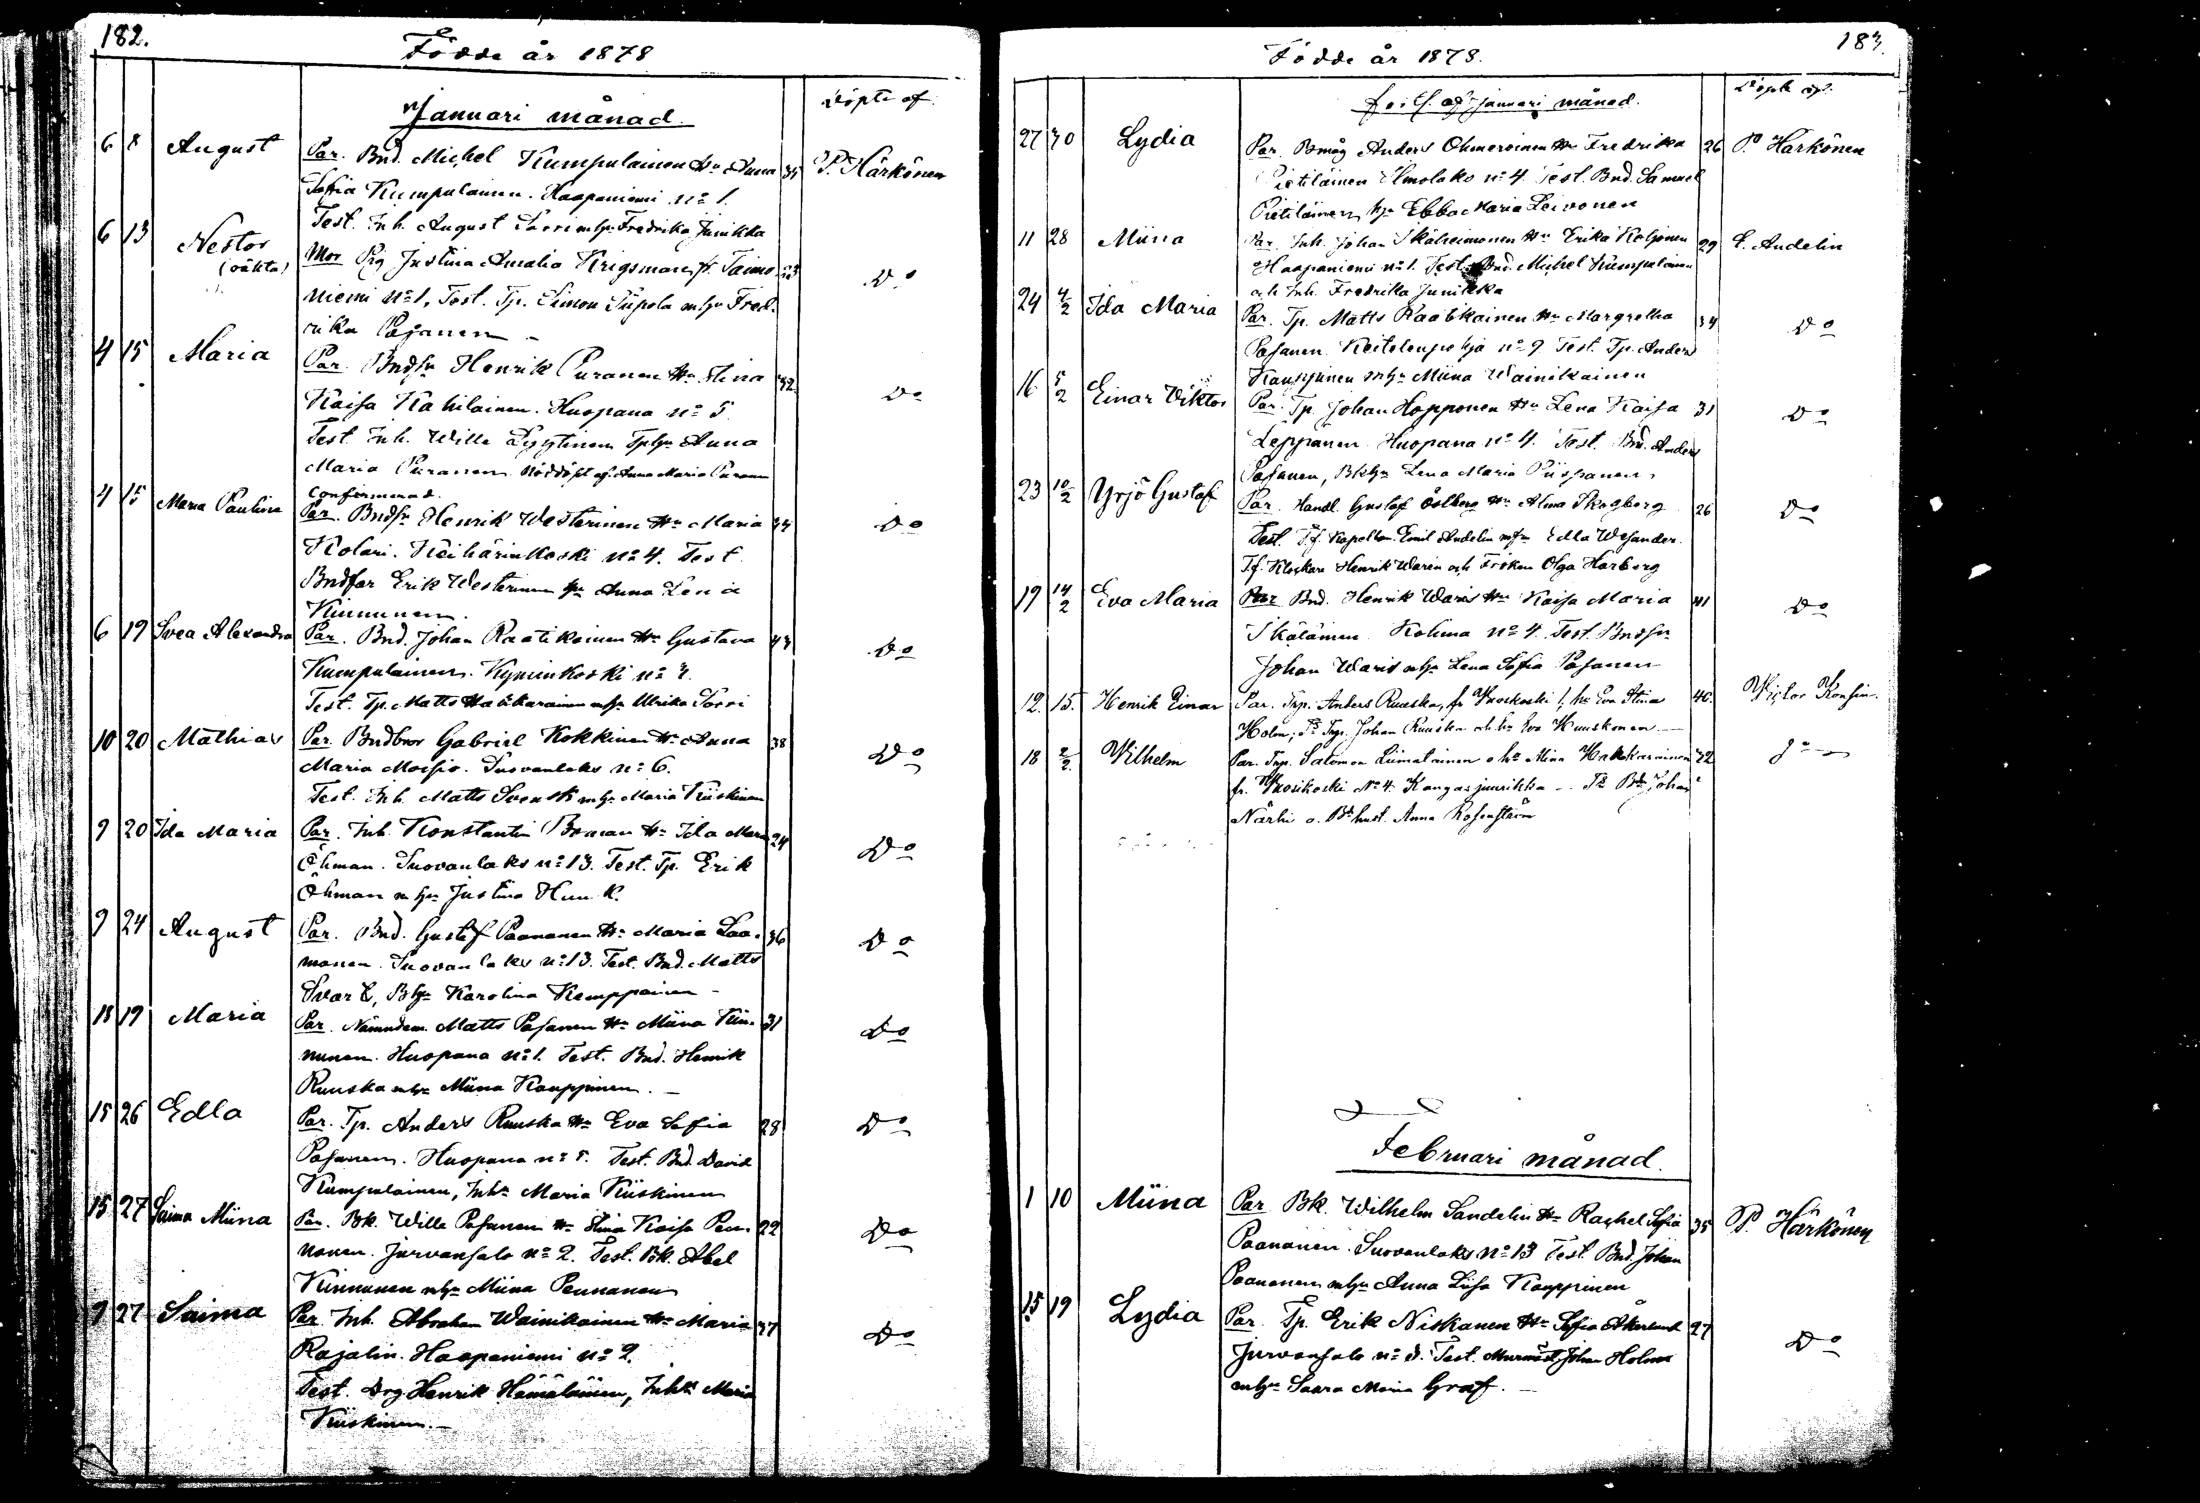 182.
Födde år 1878
Januari månad.
Döpte af
6 8 August Par. Bnd. Michel Kumpulainen Hu Anna 34 P. Härkönen
Sofia Kumpulainen. Haapaniemi No 1.
Test. Inh. August Sorri mhu Fredrika Junikka
6 13 Nestor Mor Pig Justina Amalia Krigsman fr. Taimo 23 Do
(oäkta) niemi No 1, Test. Tp. Simon Siipola mhu Fred-
rika Pasanen
4 15 Maria Par. Bndsn Henrik Puranen Hu Stina 32 Do
Kaisa Kahilainen. Huopana No 5.
Test. Inh. Wille Lyytinen Tphu Anna
Maria Puranen Nöddöpt af Anna Maria Puranen
Confirmerad.
4 15 Maria Paulina Par. Bndsn Henrik Westerinen Hu Maria 34 Do
Kolari. Keihärinkoski No 4. Test
Bndfar Erik Westerinen hu Anna Lena
Kinnunen.
6 19 Svea Alexandra Par. Bnd. Johan Raatikainen Hu Gustava 43 Do
Kumpulainen. Kyminkoski No
Test. Tp. Matts Hakkarainen mhu Ulrika Sorri
10 20 Mathias Par. Bndbror Gabriel Kokkinen Hu Anna 38 Do
Maria Moisio. Suovanlaks No 6.
Test. Inh. Matts Svensk mhu Maria Kiiskinen
9 20 Ida Maria Par. Inh. Konstantin Broman Hu Ida Maria 24 Do
Öhman. Suovanlaks No 13. Test. Tp. Erik
Öhman mhu Justina Hunk.
9 24 August Par. Bnd. Gustaf Paananen Hu Maria Laa- 36 Do
manen. Suovanlaks No 13. Test. Bnd. Matts
Svart, Bhu Karolina Kemppainen
18 19 Maria Par. Nämndem. Matts Pasanen Hu Miina Kin- 31 Do
nunen. Huopana No 1. Test. Bnd. Henrik
Ruuska mhu Miina Kauppinen.
15 26 Edla Par. Tp. Anders Ruuska Hu Eva Sofia 28 Do
Pasanen. Huopana No 5. Test. Bnd. David
Kumpulainen, Inhu Maria Kiiskinen
15 27 Saima Miina Par. Bk. Wille Pasanen Hu Stina Kaisa Pen- 22 Do
nanen. Jurvansalo No 2. Test. Bk. Abel
Kinnunen mhu Miina Pennanen
9 27 Saima Par. Inh. Abraham Wainikainen Hu Maria 37 Do
Rajalin. Haapaniemi No 2.
Test. Drg Henrik Hämäläinen, Inhu Maria
Kiiskinen.
183.
Födde år 1878.
forts. af januari månad.
Döpte af.
27 30 Lydia Par. Bmåg Anders Ohmeroinen Hu Fredrika 26 P. Härkönen
Pietiläinen Elmolaks No 4. Test. Bnd. Samuel
Pietiläinen, hu Ebba Maria Leivonen
11 28 Miina Par. Inh. Johan Ikäheimonen Hu Erika Koljonen 29 E. Andelin
Haapaniemi No 1. Test. Bnd. Michel Kumpulainen
och Inh. Fredrika Junikka
24 4/2 Ida Maria Par. Tp. Matts Raatikainen Hu Margretha 34 Do
Pasanen. Keitelenpohja No 9 Test. Tp. Anders
Kauppinen mhu Miina Wainikainen
16 5/2 Einar Viktor Par. Tp. Johan Hopponen Hu Lena Kaisa 31 Do
Leppänen. Huopana No 4. Test. Bnd. Anders
Pasanen, Bkhu Lena Maria Piispanen
23 10/2 Yrjö Gustaf Par. Handl. Gustaf Östberg Hu Alma Skogberg 26 Do
Test. Tf. Kapellan Emil Andelin mfn Edla Wesander.
Tf. Klockare Henrik Warén och Fröken Olga Harberg
19 14/2 Eva Maria Par. Bnd. Henrik Waris Hu Kaisa Maria 41 Do
Ikäläinen. Kolima No 4. Test. Bndsn
Johan Waris mhu Lena Sofia Pasanen
12. 15. Henrik Einar Par. Trp. Anders Ruuska, fr Wuoskoski 1, hu Eva Stina 40. Victor Konsin.
Holm, Ts Trp. Johan Ruuska och hu Eva Kuuskonen
18 2/2 Wilhelm Par. Trp. Salomon Liimatainen o hu Miina Hakkarainen 32 Do
fr. Wuosikoski No 4. Kangasjuurikka - Ts Bd Johan
Närhi o. Bd hust. Anna Rosenström
Februari månad.
1 10 Miina Par Bk. Wilhelm Sandelin Hu Rachel Sofia 35 P. Härkönen
Paananen. Suovanlaks No 13 Test. Bnd. Johan
Paananen mhu Anna Liisa Kauppinen
15 19 Lydia Par. Tp. Erik Niskanen Hu Sofia Åkerlund 27 Do
Jurvansalo No 3. Test. Murmäst. Johan Holm
mhu Saara Maria Graf.